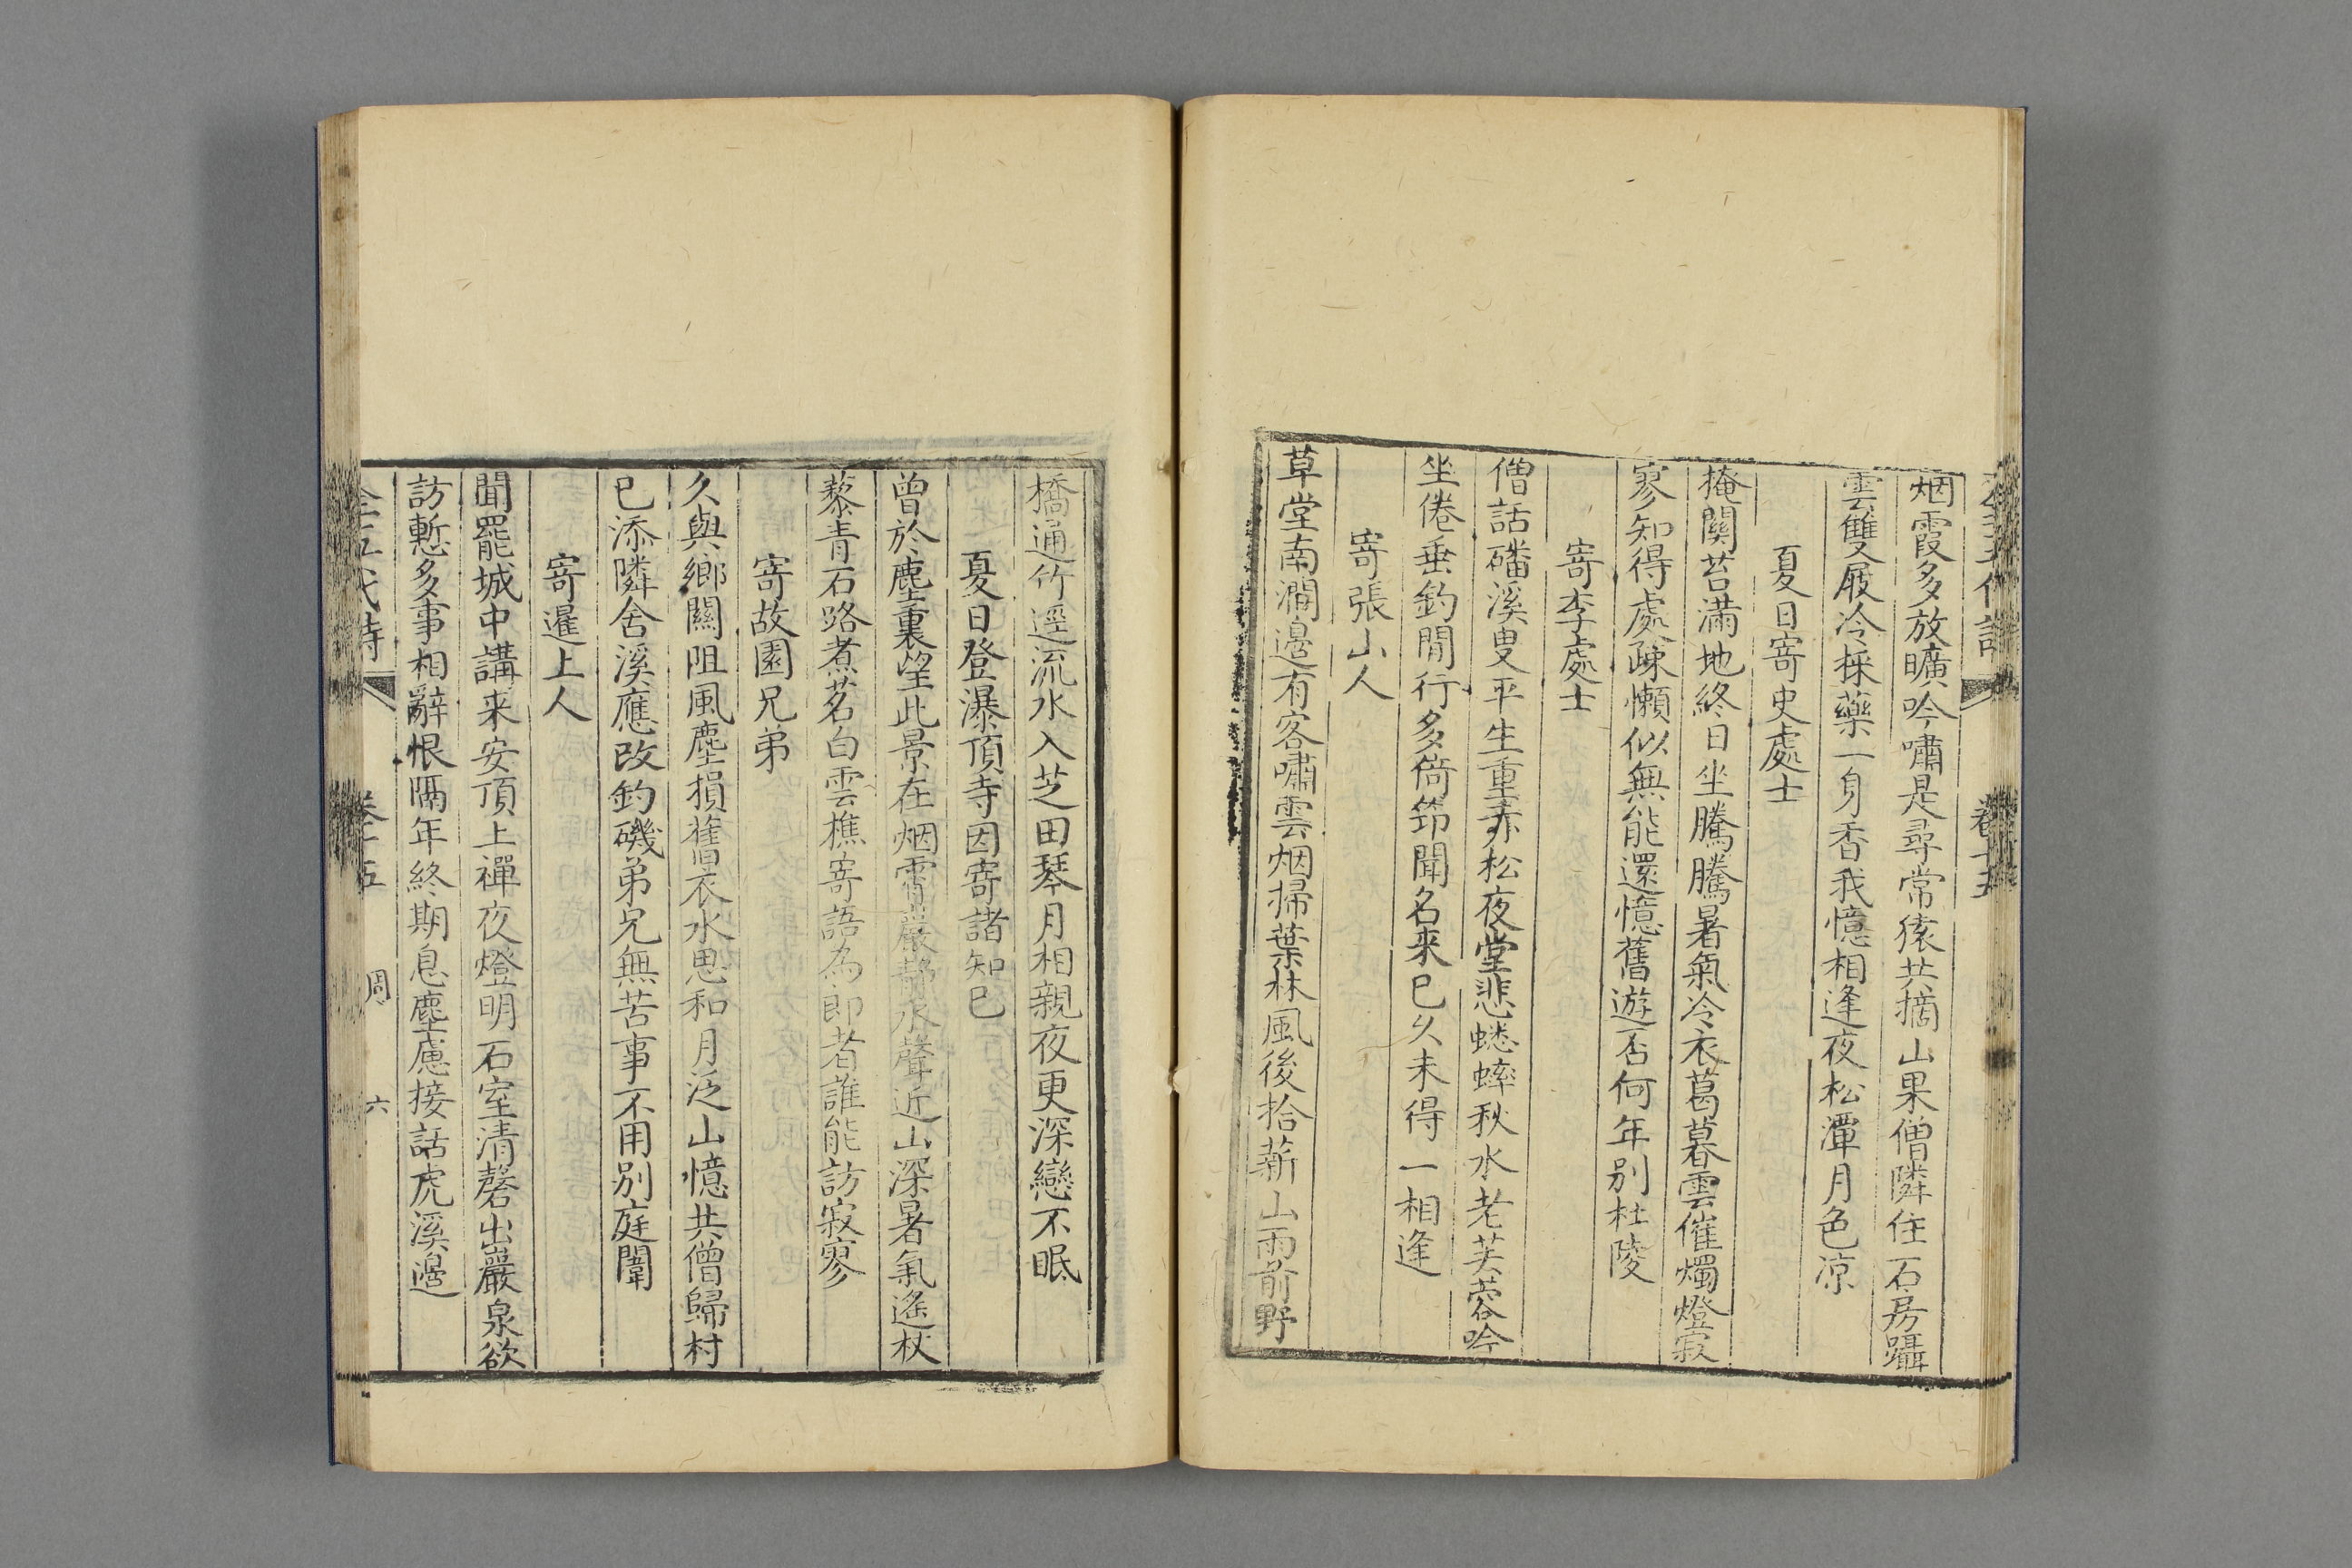 烟霞多放曠吟嘯是尋常猿共摘山果僧隣住石房躡
雲雙屐冷採藥一身香我憶相逢夜松潭月色凉
夏日寄史處士
掩關苔滿地終日坐騰騰暑氣冷衣葛暮雲催燭燈寂
寥知得處疎懶似無能還憶舊遊否何年别杜陵
寄李處士
僧話磻溪叟平生重赤松夜堂悲蟋蟀秋水老芙蓉吟
坐倦垂釣閒行多倚筇聞名來已久未得一相逢
寄張山人
草堂南澗邊有客嘯雲烟掃葉林風後拾薪山雨前野
橋通竹逕流水入芝田琴月相親夜更深戀不眠
夏日登瀑頂寺因寄諸知己
曾於塵裏望此景在烟霄巖静水聲近山深暑氣遙杖
藜青石路煮茗白雲樵寄語為郎者誰能訪寂寥
寄故園兄弟
久與鄉關阻風塵損舊衣水思和月泛山憶共僧歸村
已添隣舍溪應改釣磯弟兄無苦事不用别庭闈
寄暹上人
聞罷城中講来安頂上禪夜燈明石室清磬出巖泉欲
訪慙多事相辭恨隔年終期息塵慮接話虎溪邊
全五代詩
卷十五
周
六